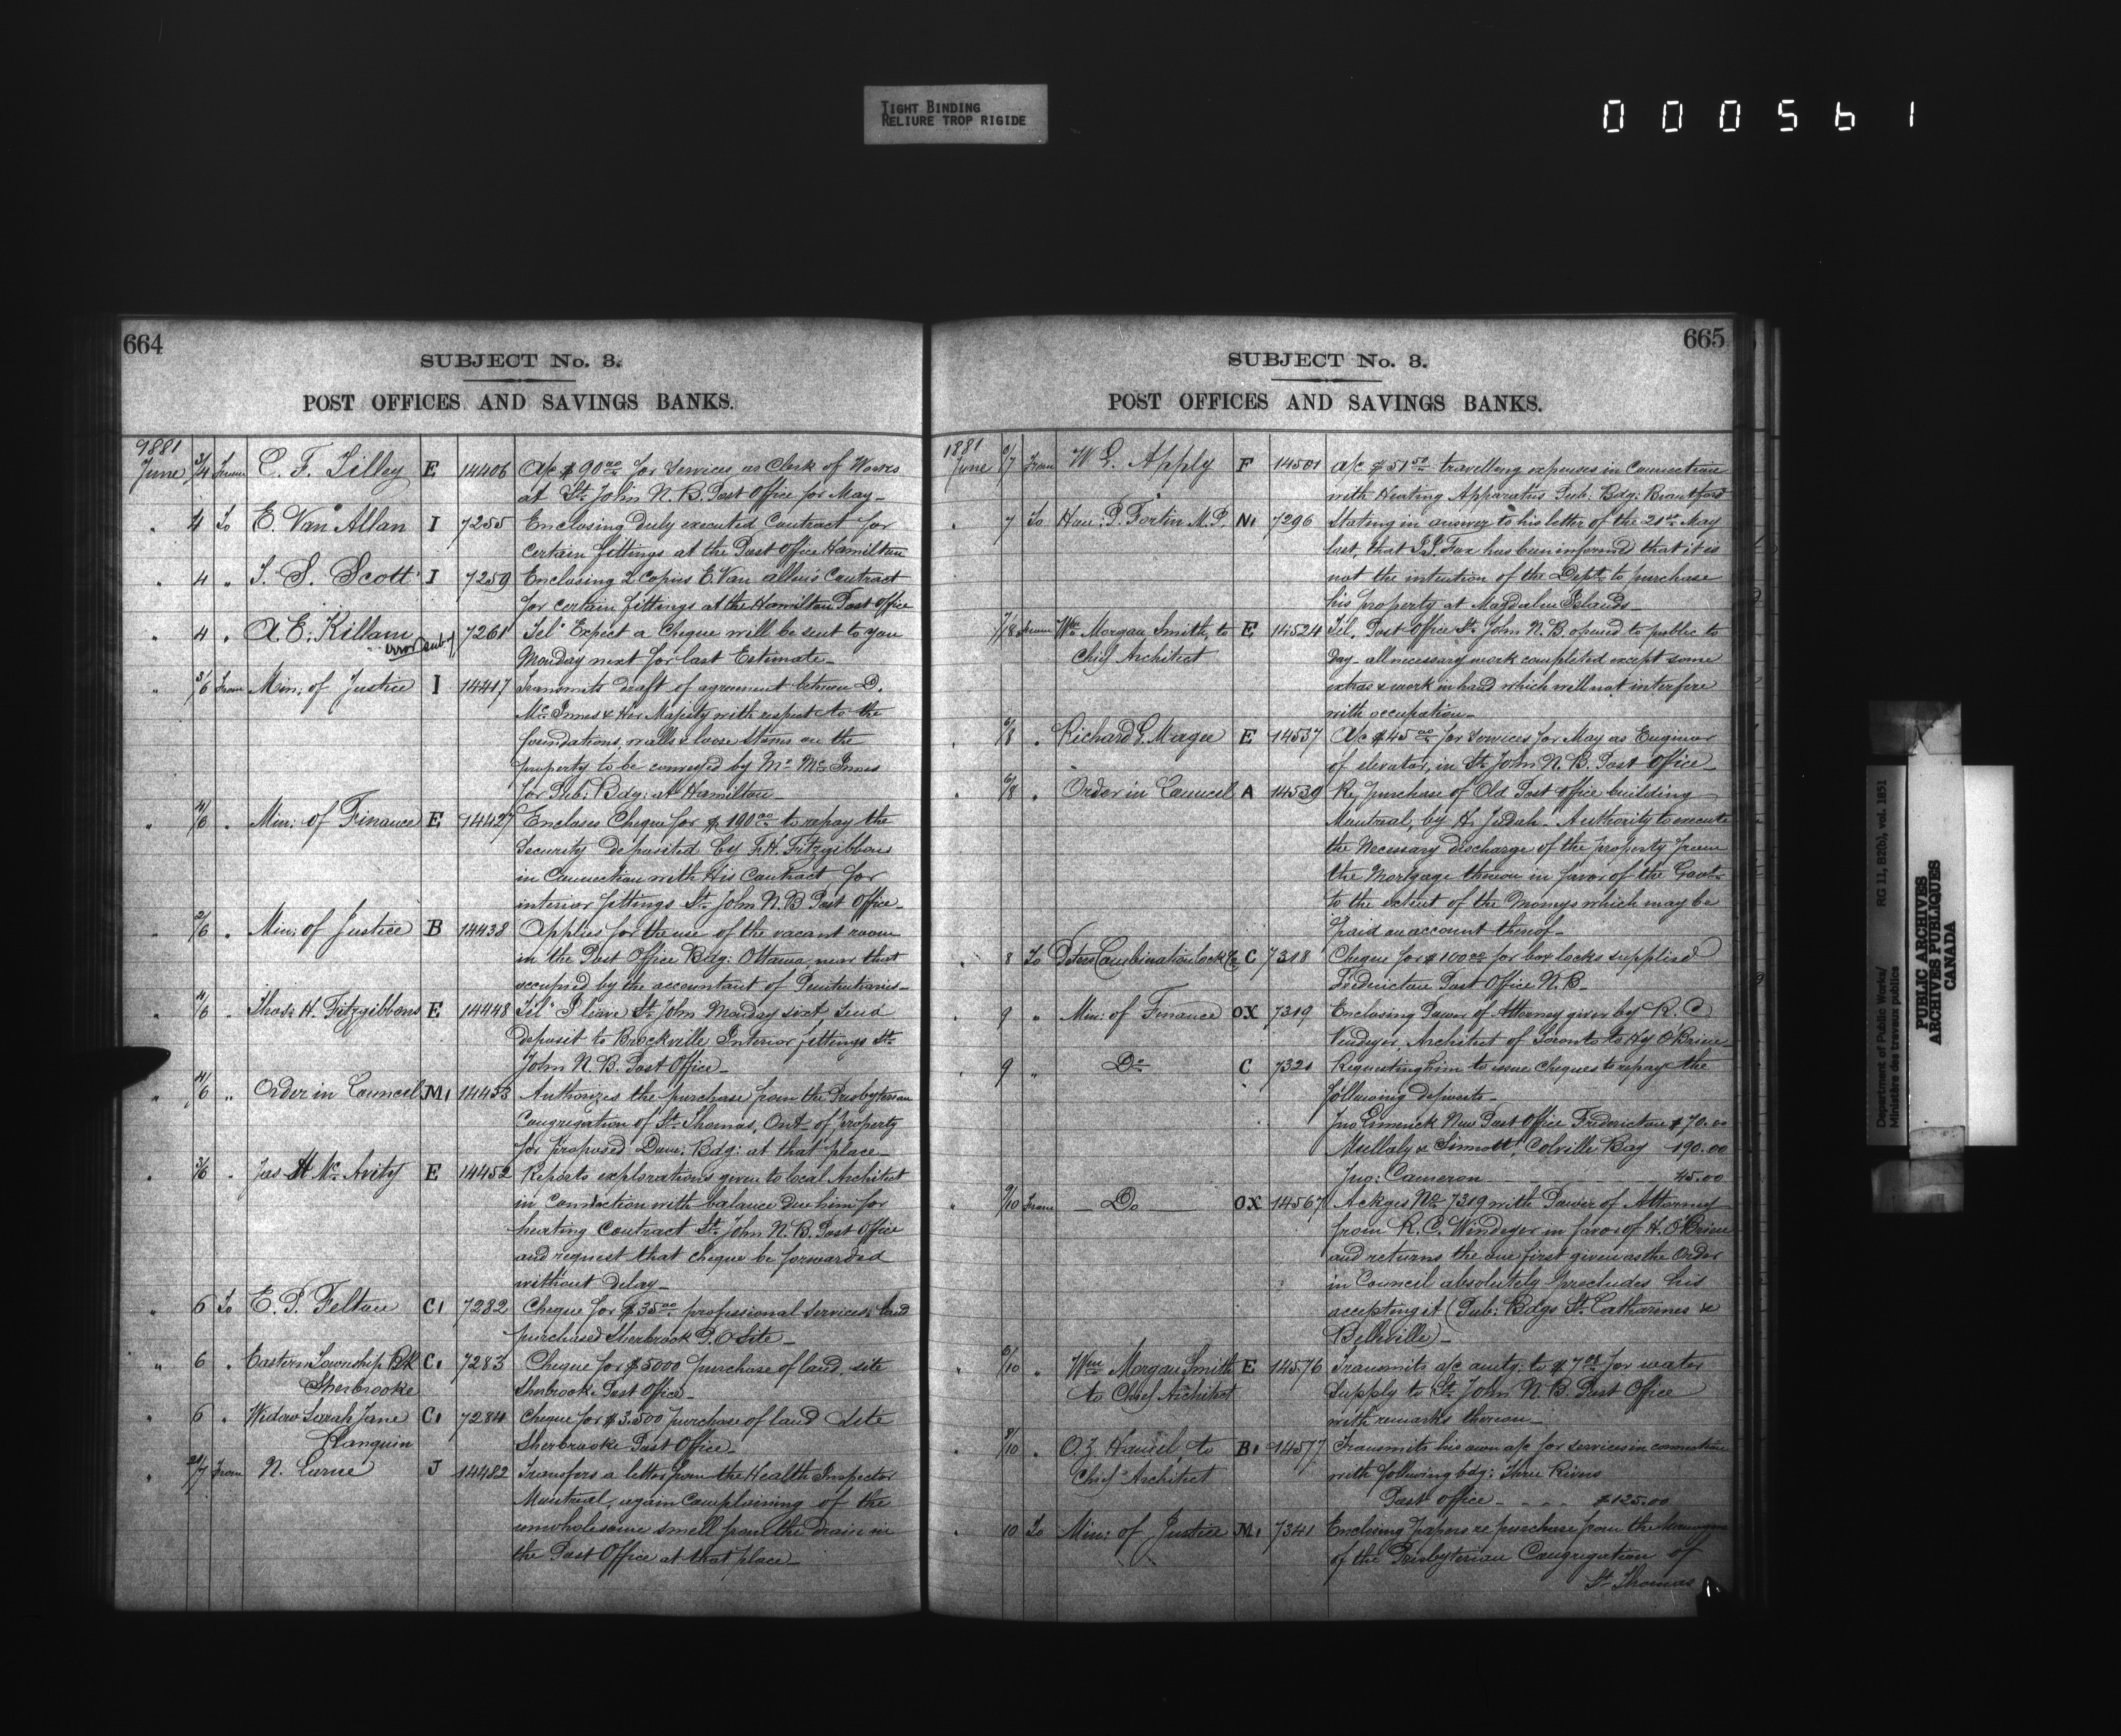 TIGHT BINDING
RELIURE TROP RIGIDE
000561
664
SUBJECT No. 3.
POST OFFICES AND SAVINGS BANKS.
1881
June 3/4 From C. F. Tilley E 14406 A/c $90.00 for services as Clerk of Works
at St. John N.B. Post Office for May_
" 4 To E. Van Allan I 7255 Enclosing duly executed Contract for
certain fittings at the Post Office Hamilton
" 4 " T. S. Scott I 7259 Enclosing 2 Copies E. Van allen's Contract
for certain fittings at the Hamilton Post Office
" 4 " A. E. Killam error 7261 Tel" Expect a Cheque will be sent to you
Monday next for last Estimate_
" 3/6 From Min: of Justice I 14417 Transmits draft of agreement between D.
McInnes & Her Majesty with respect to the
foundations, walls & loose stones on the
property to be conveyed by Mr McInnes
for Pub: Bdg: at Hamilton_
" 4/6 " Min: of Finance E 14427 Encloses Cheque for $100.00 to repay the
security deposited by T. H. Fitzgibbons
in Connection with His Contract for
interior fittings St. John N.B Post Office_
" 2/6 " Min: of Justice B 14438 Applies for the use of the vacant room
in the Post Office Bdg: Ottawa, near that
occupied by the accountant of Penitentiaries_
" 4/6 " Thos: H. Fitzgibbons E 14448 Tel" I leave St. John Monday sixt send
deposit to Brockville Interior fittings St.
John N.B. Post Office_
" 4/6 " Order in Council M1 14453 Authorizes the purchase from the Presbyterian
Congregation of St. Thomas, Ont. of property
for proposed Dom: Bdg: at that place_
" 3/6 " Jas H McAvity E 14452 Reports explorations given to local Architect
in Connection with balance due him for
heating Contract St. John N.B. Post Office
and request that cheque be forwarded
without delay_
" 6 To E. P. Felton C1 7282 Cheque for $35.00 professional services, land
purchased Sherbrook P.O. Site_
" 6 " Eastern Township Bk C1 7283 Cheque for $5000 purchase of land, site
Sherbrooke Sherbrooke Post Office_
" 6 " Widow Sarah Jane C1 7284 Cheque for $3.500 purchase of land site
Sherbrooke Post Office_
From N. J 14482 Transfers a letter from the Health Inspector
Montreal, again Complaining of the
unwholesome smell from the drain in
the Post Office at that place_
665
SUBJECT No. 3.
POST OFFICES AND SAVINGS BANKS.
1881
June 6/7 From W G. Apply F 14501 A/c $51.50 travelling expenses in Connection
with Heating Apparatus Pub: Bdg: Brantford
" 7 To Hon: P. Fortin M.P. N1 7296 Stating in answer to his letter of the 21st May
last, that J.J. Fox has been informed that it is
not the intention of the Dept. to purchase
his property at Magdalen Islands_
7/8 From Wm Morgan Smith, to E 14524 Tel. Post Office St. John N.B. opened to public to
Chief Architect day_ all necessary work completed except some
extras & work in hand which will not interfere
with occupation_
" 6/8 " Richard G. Magee E 14537 A/c $45.00 for services for May as Engineer
of elevator, in St. John N.B. Post Office_
" 6/8 " Order in Council A 14539 Re purchase of Old Post Office building
Montreal, by H. Judah. Authority to execute
the Necessary discharge of the property from
the Mortgage thereon in favor of the Govt.
to the extent of the Moneys which may be
paid on account thereof_
" 8 To Combination Lock Co C 7318 Cheque for $100.00 for box locks supplied
Fredericton Post Office N.B_
" 9 " Min: of Finance OX 7319 Enclosing Power of Attorney given by R. C
Windeyer, Architect of Toronto to Hy O'Brien
" 9 " Do C 7321 Requesting him to issue Cheques to repay the
following deposits_
Jno Limerick New Post Office Fredericton $70.00
Mullaly & Sinnott, Colville Bay 190.00
Jno: Cameron 45.00
" 9/10 From _ Do _ OX 14567 Ackges No 7319 with Power of Attorney
from R. C. Windeyer in favor of H. O'Brien
and returns the one first given as the Order
in Council absolutely precludes his
accepting it (Pub: Bdgs St. Catharines &
Belleville)_
" 6/10 " Wm Morgan Smith E 14576 Transmits a/c amtg: to $7.00 for water
to Chief Architect supply to St. John N.B. Post Office
with remarks thereon_
" 8/10 " O. Z. Hamel, to B1 14577 Transmits his own a/c for services in connection
Chief Architect with following bdg: Three Rivers
Post office _ _ _ _ $125.00
" 10 To Min: of Justice M1 7341 Enclosing papers re purchase from the
of the Presbyterian Congregation of
St. Thomas
Department of Public Works/ RG 11, B2(b), vol. 1851
Ministère des travaux publics
PUBLIC ARCHIVES
ARCHIVES PUBLIQUES
CANADA